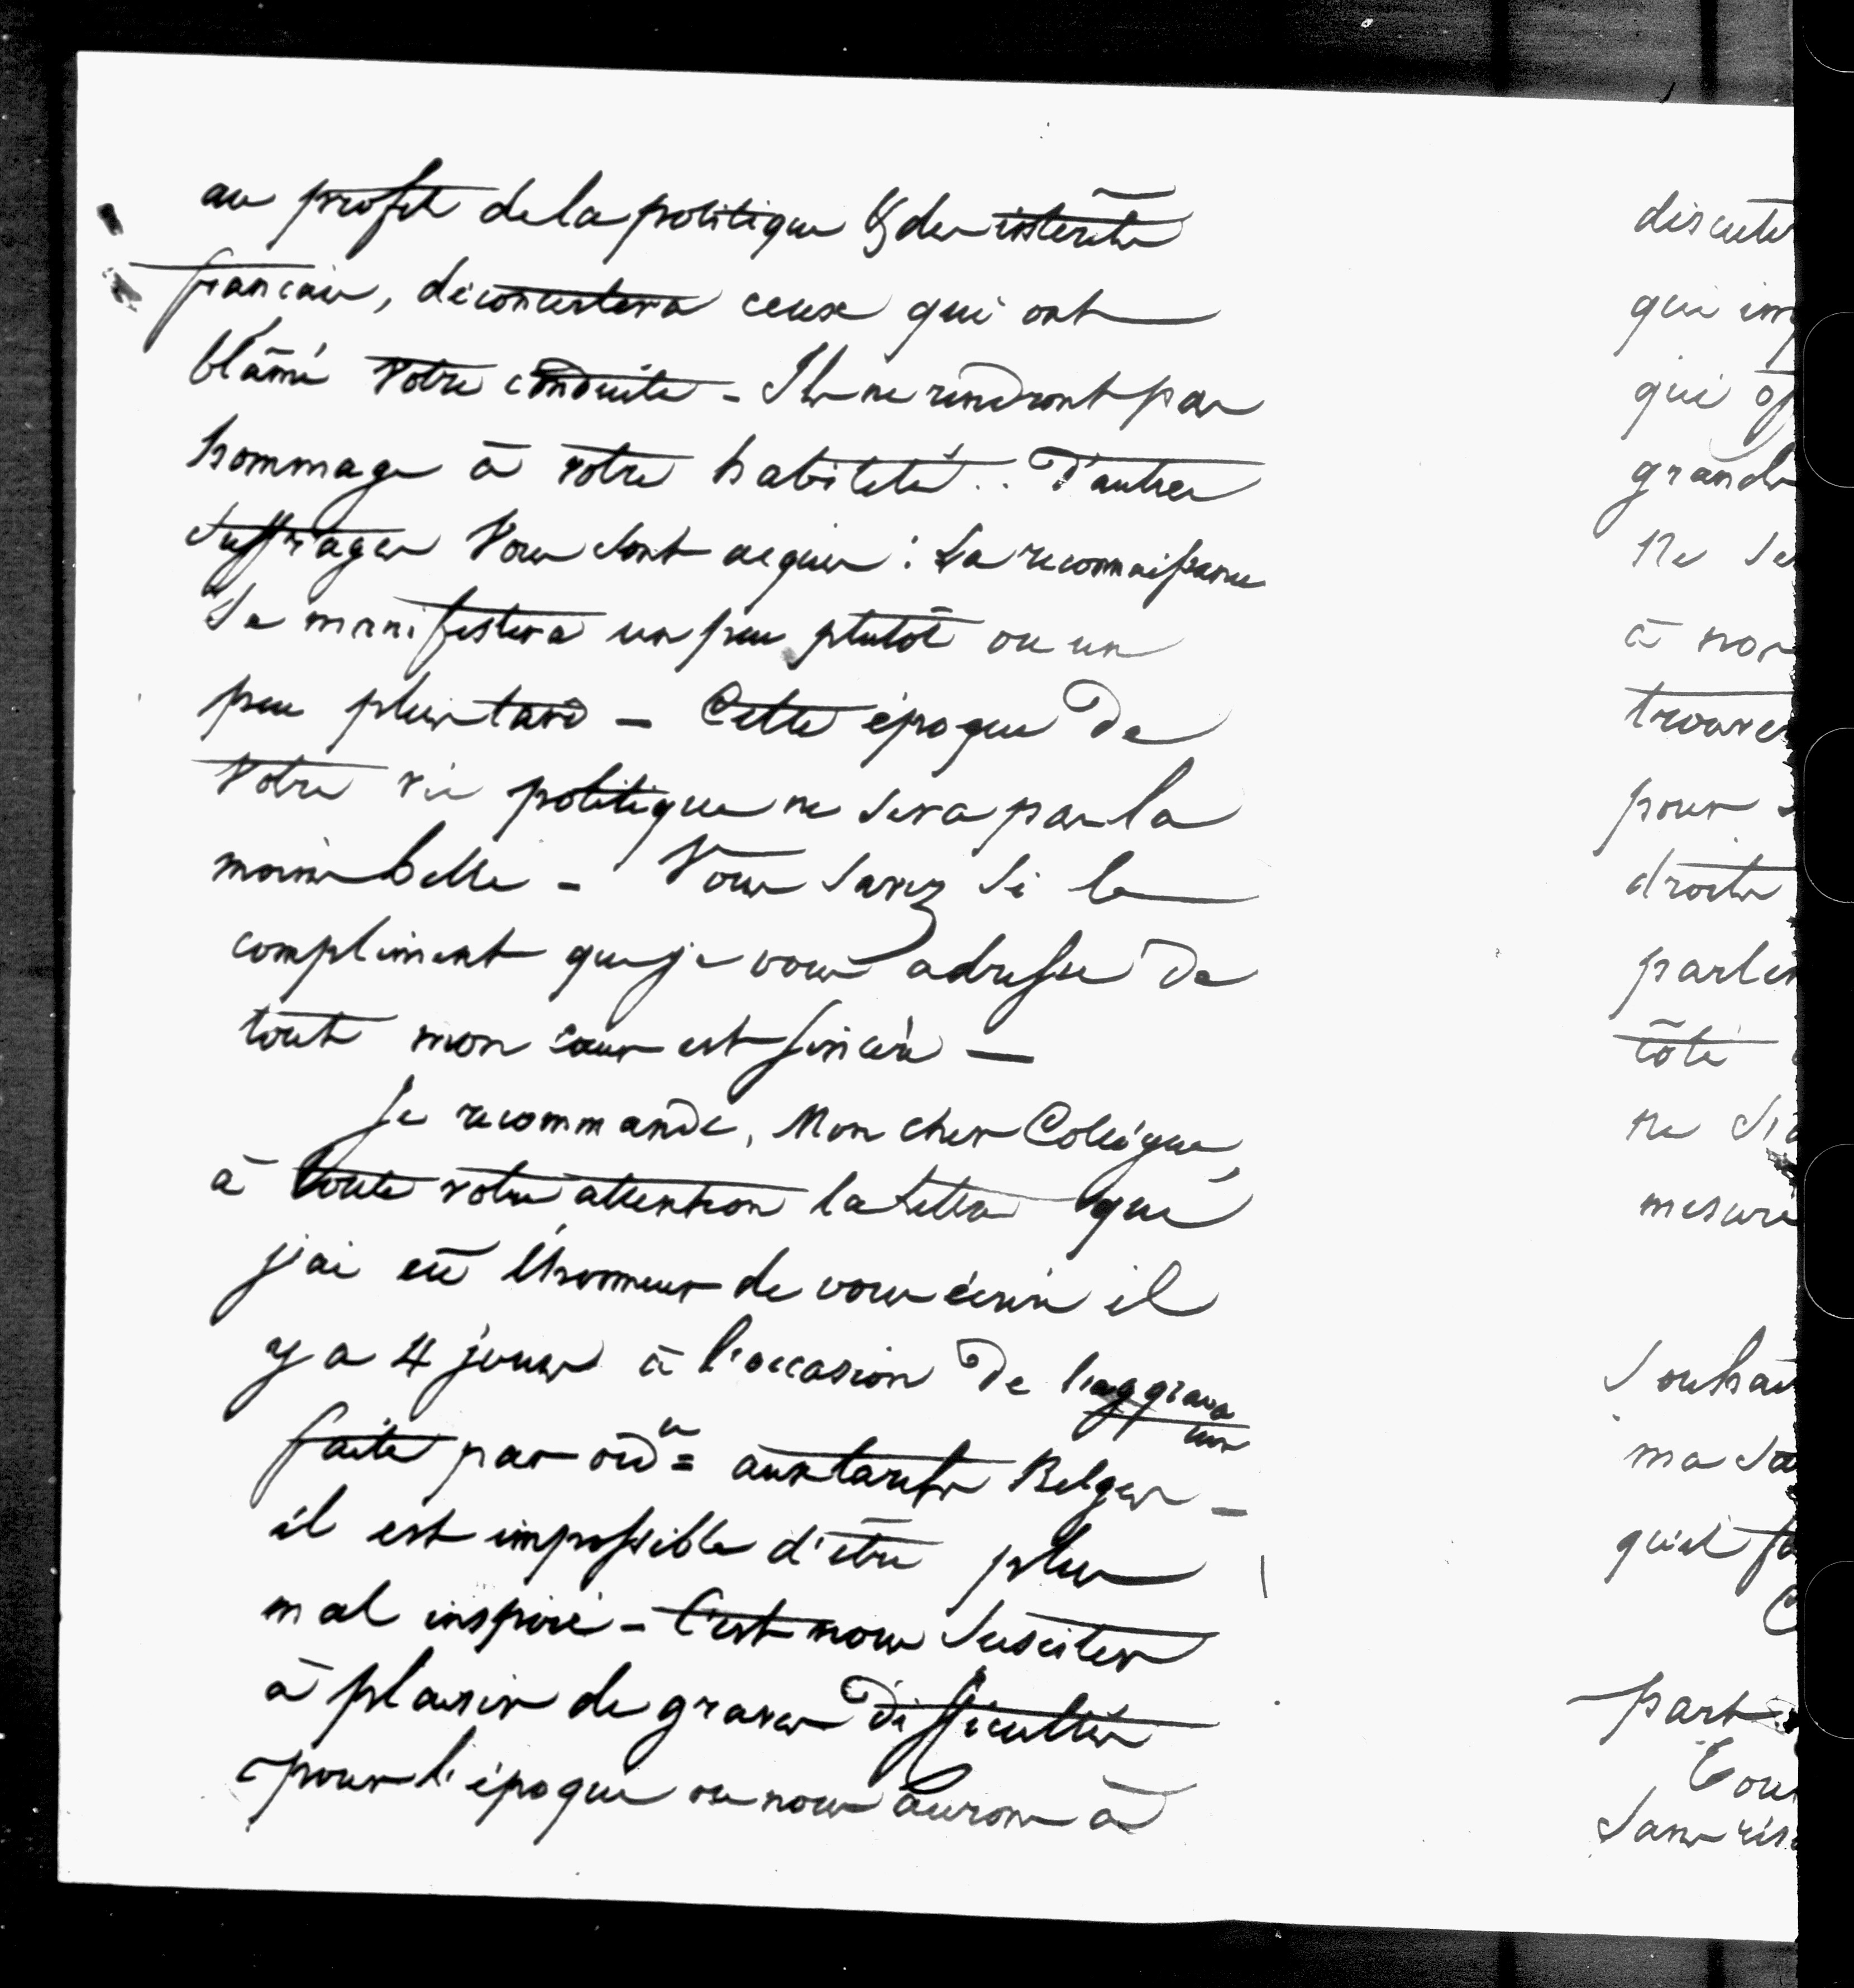 au profit de la politique & des intérêts
français, déconcertera ceux qui ont
blâmé votre conduite - Ils ne rendront pas
hommage à votre habileté.. D'autres
suffrages vous sont acquis : La reconnaissance
se manifestera un peu plutôt ou un
peu plus tard - Cette époque de
votre vie politique ne sera pas la
moins belle - Vous savez si le
compliment que je vous adresse de
tout mon cœur est sincère -
Je recommande, Mon cher Collègue,
à toute votre attention la lettre que
j'ai eû l'honneur de vous écrire il
y a 4 jours à l'occasion de l'aggrava
tion
faite par ord.ce aux tarifs Belges -
il est impossible d'être plus
mal inspiré - C'est nous susciter
à plaisir de graves difficultés
pour l'époque ou nous aurons à
discute
qui im
qui op
grande
ne se
à nos
trouver
pour
droits
parle
côté
ne s
mesure
souhai
ma sa
qu'il fa
part
Tou
sans